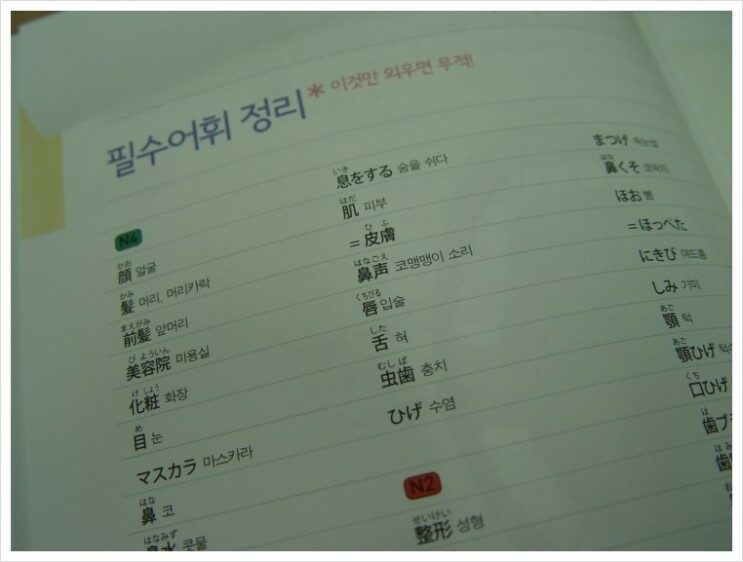 필수어휘 정리 * 이것만 외우면 무적!
N4
かお
顔 얼굴
かみ
髪 머리, 머리카락
まえがみ
前髪 앞머리
びよういん
美容院 미용실
けしょう
化粧 화장
め
目 눈
マスカラ 마스카라
はな
鼻 코
はなみず
鼻水 콧물
いき
息をする 숨을 쉬다
はだ
肌 피부
ひふ
= 皮膚
はなごえ
鼻声 코맹맹이 소리
くちびる
唇 입술
した
舌 혀
むしば
虫歯 충치
ひげ 수염
N2
せいけい
整形 성형
まつげ 속눈썹
はな
鼻くそ 코딱지
ほお 뺨
= ほっぺた
にきび 여드름
しみ 기미
あご
顎 턱
あご
顎ひげ
くち
口ひげ
は
歯ブ